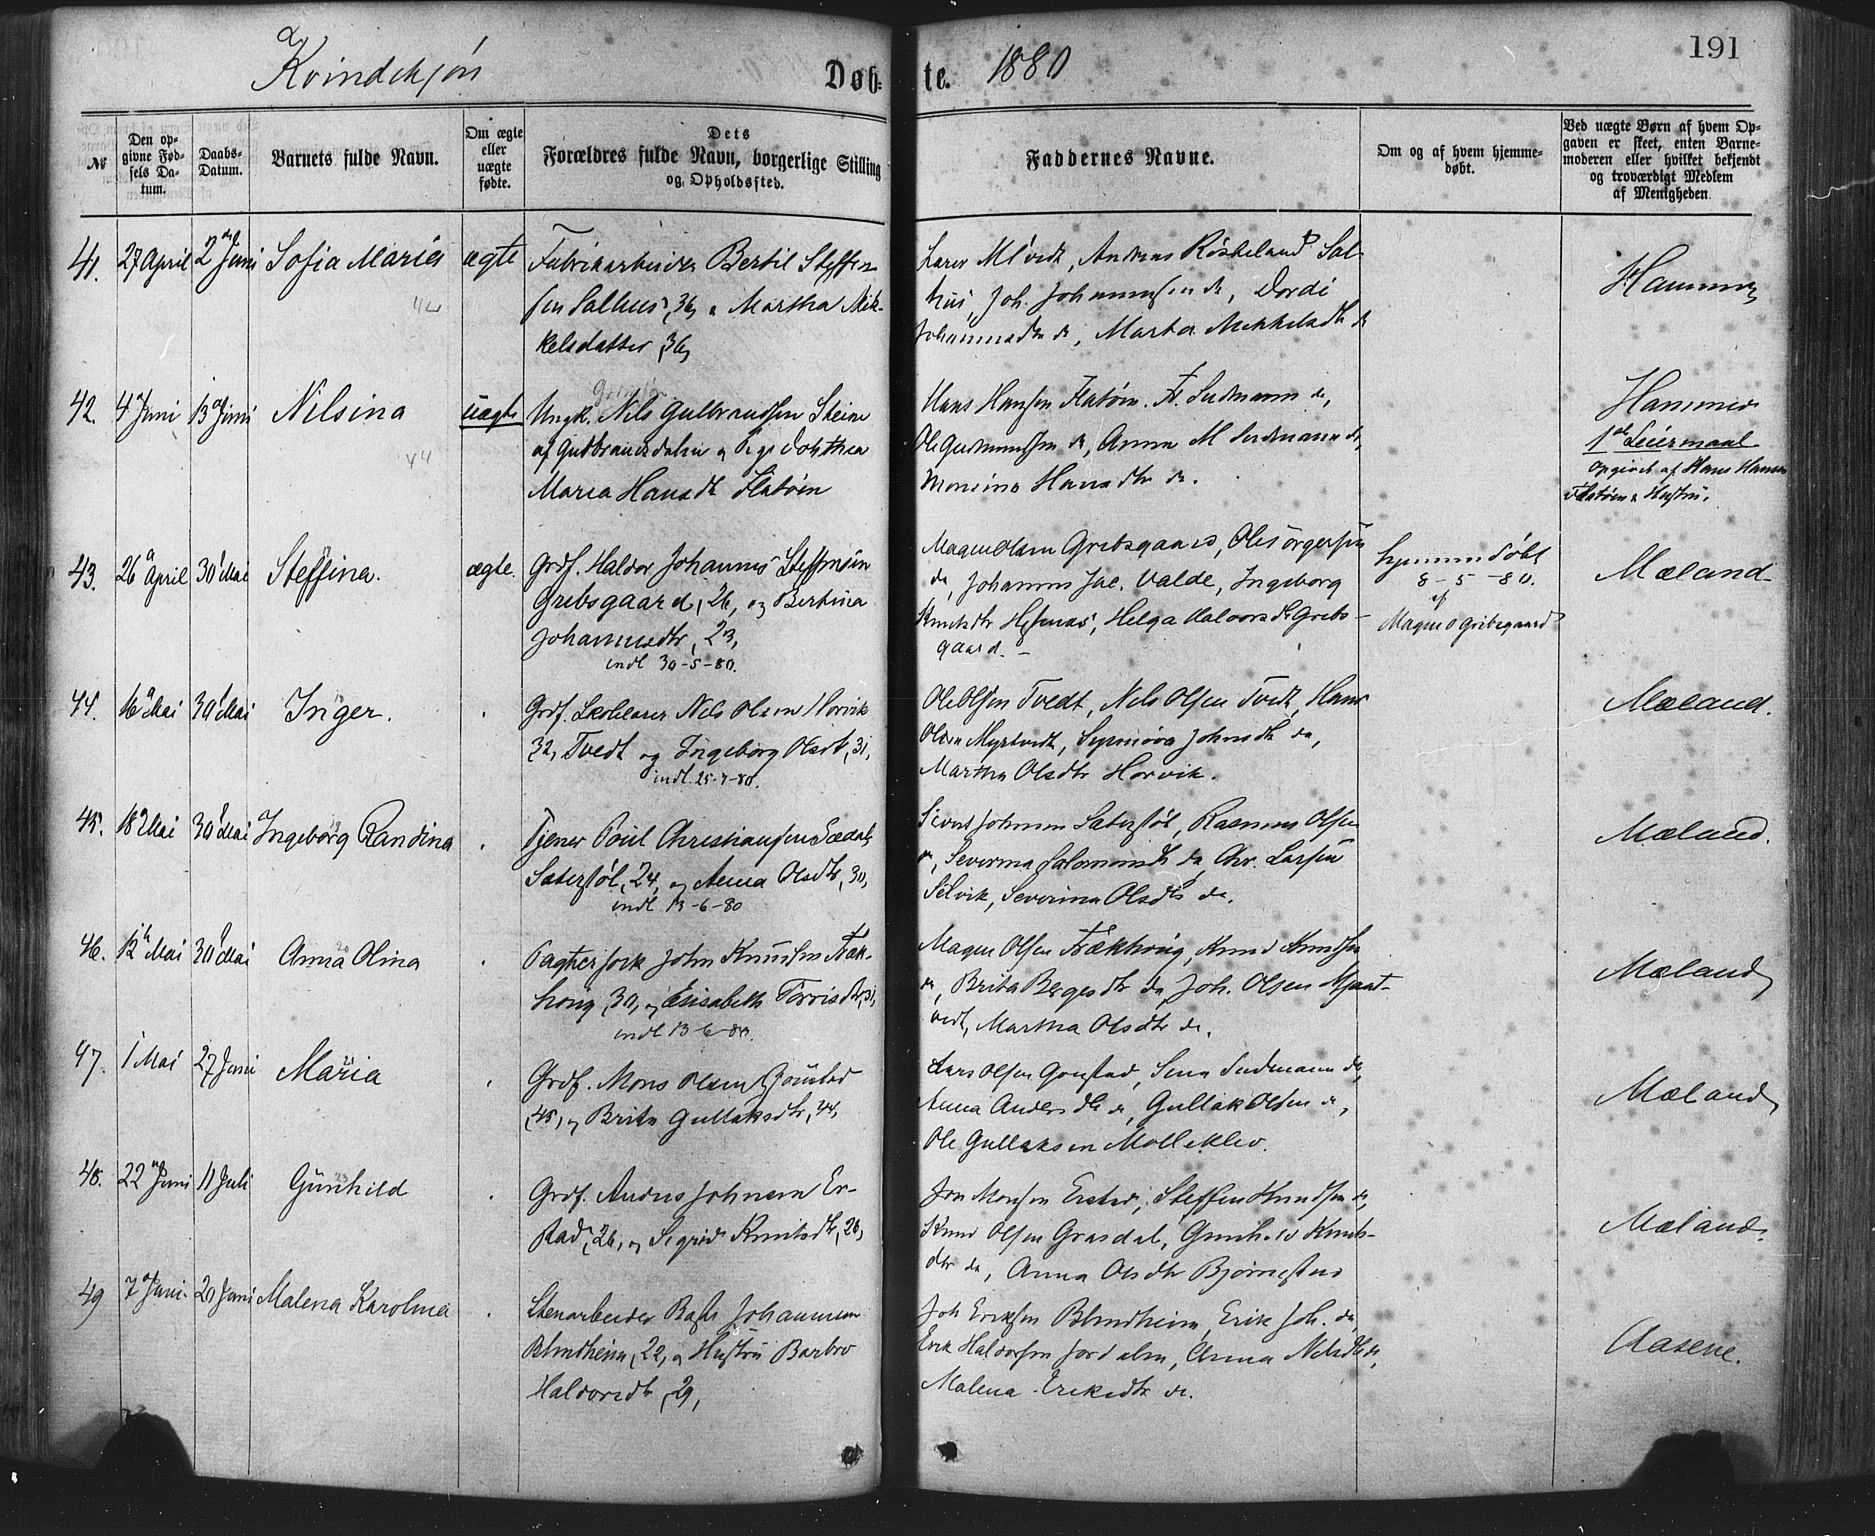 Kvindekjön
Døb-
te.
1880
191
№
Den op-
givne Fød-
sels Da-
tum.
Daabs-
Datum.
Barnets fulde Navn.
Om ægte
eller
uægte
fødte.
Dets
Forældres fulde Navn, borgerlige Stilling
og Opholdssted.
Faddernes Navne.
Om og af hvem hjemme-
døbt.
Ved uægte Børn af hvem Op-
gaven er skeet, enten Barne-
moderen eller hvilket bekjendt
og troværdigt Medlem
af Menigheden.
41. 27 April 2 Juni Sofia Maria ægte Fabrikarbeider Bertil Steffen-
sen Salhus, 36, & Martha Mik-
kelsdatter, 36,
Andreas Röskeland Sal-
hus, Joh. Johannessen do, Dordi
Johannesdtr do, Marta Mikkelsdtr do
Hammer
42. 4 Juni 13 Juni Nilsina uægte Ungk. Nils Gulbrandsen Steine
af Gudbrandsdalen & Pige Dorthea
Maria Hansdtr Flatöen
Hans Hansen Flatöen. Sudmann do,
Ole Gudmundsen do, Anna M Sudmann do,
Monsine Hansdtr do.
Hammer
1ste Leiermaal
opgivet af Hans Hansen
Flatöen & Hustru.
43. 26 April 30 Mai Steffina. ægte. Grdf. Haldor Johannes Steffensen
Grebsgaard, 26, og Bertina
Johannesdtr, 23,
indl 30-5-80.
Magne Olsen Grebsgaard, Ole
do, Johannes Jac. Valde, Ingeborg
Knutsdtr, Helga Halvorsdtr Grebs-
gaard. -
hjemmedöbt
8-5-80.
af
Magne O Grebsgaard
Mæland
44. 16 Mai 30 Mai Inger. Grdf. Nils Olsen Horvik
32, Tvedt og Ingeborg Olsdt, 31,
indl. 25-7-80.
Ole Olsen Tvedt, Nils Olsen Tvedt, Hans
Olsen Myrtvedt, Synnöva Johnsdtr do,
Martha Olsdtr Horvik.
Mæland.
45. 18 Mai 30 Mai Ingeborg Randina Tjener Poul Christiansen
Sæterstöl, 24, og Anna Olsdtr, 30,
indl 13-6-80
Sivert Johnsen Sæterstöl, Rasmus Olsen
do, Severina Salomonsdtr do, Chr. Larsen
Selvik, Severina Olsdtr do.
Mæland.
46. 12 Mai 30 Mai Anna Olina John Knudsen Træk-
hong, 30, og Elisabeth Torrisdtr,
indl 13-6-80.
Magne Olsen Trækhong, Knud Knudsen
do, Brita Bergesdtr do, Joh. Olsen Mjaat-
vedt, Martha Olsdtr do.
Mæland
47. 1 Mai 27 Juni Maria Grdf. Mons Olsen Gjönstad
45, og Brita Gullaksdtr, 44,
Lars Olsen Gonstad, Sina Sudmann do,
Anna Andersdtr do, Gullak Olsen do,
Ole Gullaksen Mölleklev.
Mæland
48. 22 Juni 11 Juli Gunhild Grdf. Anders Johnsen Er-
stad, 26, og Sigrid Knutsdtr, 26,
Jon Monsen Erstad, Steffen Knudsen do,
Knud Olsen Grasdal, Gunhild Knuts-
dtr do, Anna Olsdtr Björnestad
Mæland.
49 7 Juni 20 Juni Malena Karolina Stenarbeider Johannesen
Blindheim, 22, og Hustru Barbro
Haldorsdtr, 29,
Joh Eriksen Blindheim, Erik Joh. do,
Erik Haldorsen Jordalen, Anna Nilsdtr do,
Malena Eriksdtr do.
Aasene.